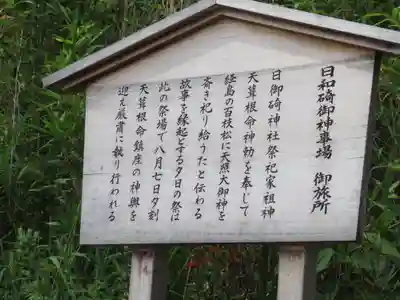 日和碕御神事場　御旅所
日御碕神社祭祀家祖神
天葺根命神勅を奉じて
経島の百枝松に天照大御神を
寄き祀り給うたと伝わる
故事を縁起とする夕日の祭は
此の祭場で八月七日夕刻
天葺根命鎮座の神輿を
迎え厳粛に執り行われる